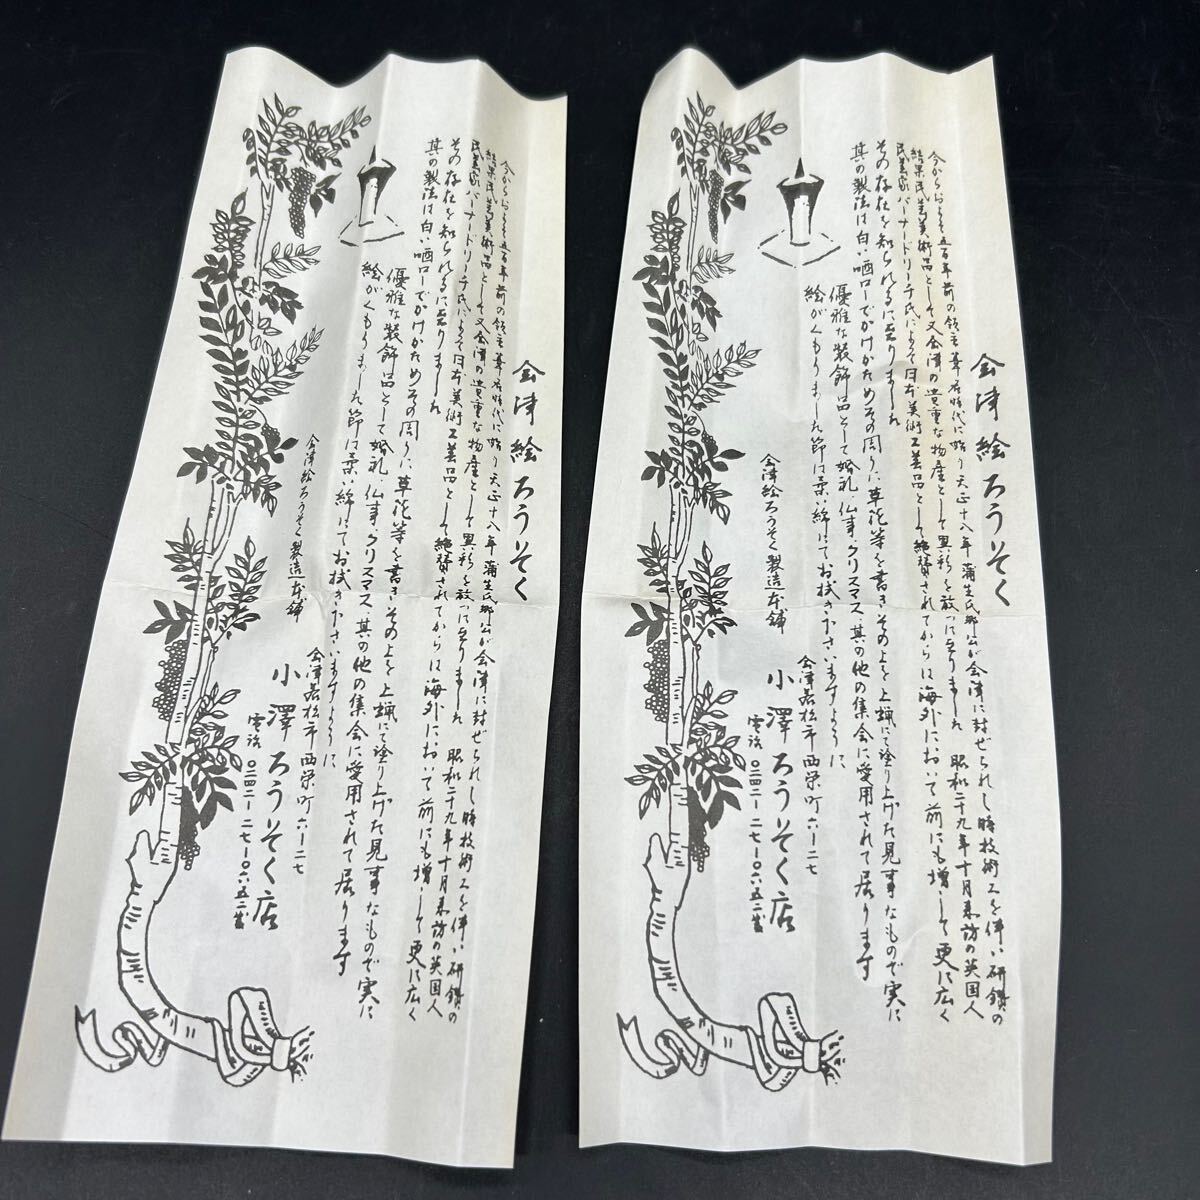 会津絵ろうそく
今からおよそ五百年前の領主葦名時代に始り天正十八年蒲生氏郷公が会津に封ぜられし時技術工を伴い研鑚の
結果民芸美術品として又会津の貴重な物産として異彩を放つに至りました 昭和二十九年十月来訪の英国人
民芸家バーナードリーチ氏によって日本美術工芸品として絶賛されてからは海外において前にも増して更に広く
その存在を知られるに至りました
其の製法は白い晒ローでかけかためその周りに草花等を書きその上を上蝋にて塗り上げた見事なもので実に
優雅な装飾品として婚礼、仏事、クリスマス、其の他の集会に愛用されて居ります
絵がくもりました節は柔い綿にてお拭き下さいますように
会津絵ろうそく製造本舗
会津若松市西栄町六ー二七
小澤ろうそく店
電話 〇二四二ー二七ー〇六五二番
会津絵ろうそく
今からおよそ五百年前の領主葦名時代に始り天正十八年蒲生氏郷公が会津に封ぜられし時技術工を伴い研鑚の
結果民芸美術品として又会津の貴重な物産として異彩を放つに至りました 昭和二十九年十月来訪の英国人
民芸家バーナードリーチ氏によって日本美術工芸品として絶賛されてからは海外において前にも増して更に広く
その存在を知られるに至りました
其の製法は白い晒ローでかけかためその周りに草花等を書きその上を上蝋にて塗り上げた見事なもので実に
優雅な装飾品として婚礼、仏事、クリスマス、其の他の集会に愛用されて居ります
絵がくもりました節は柔い綿にてお拭き下さいますように
会津絵ろうそく製造本舗
会津若松市西栄町六ー二七
小澤ろうそく店
電話 〇二四二ー二七ー〇六五二番